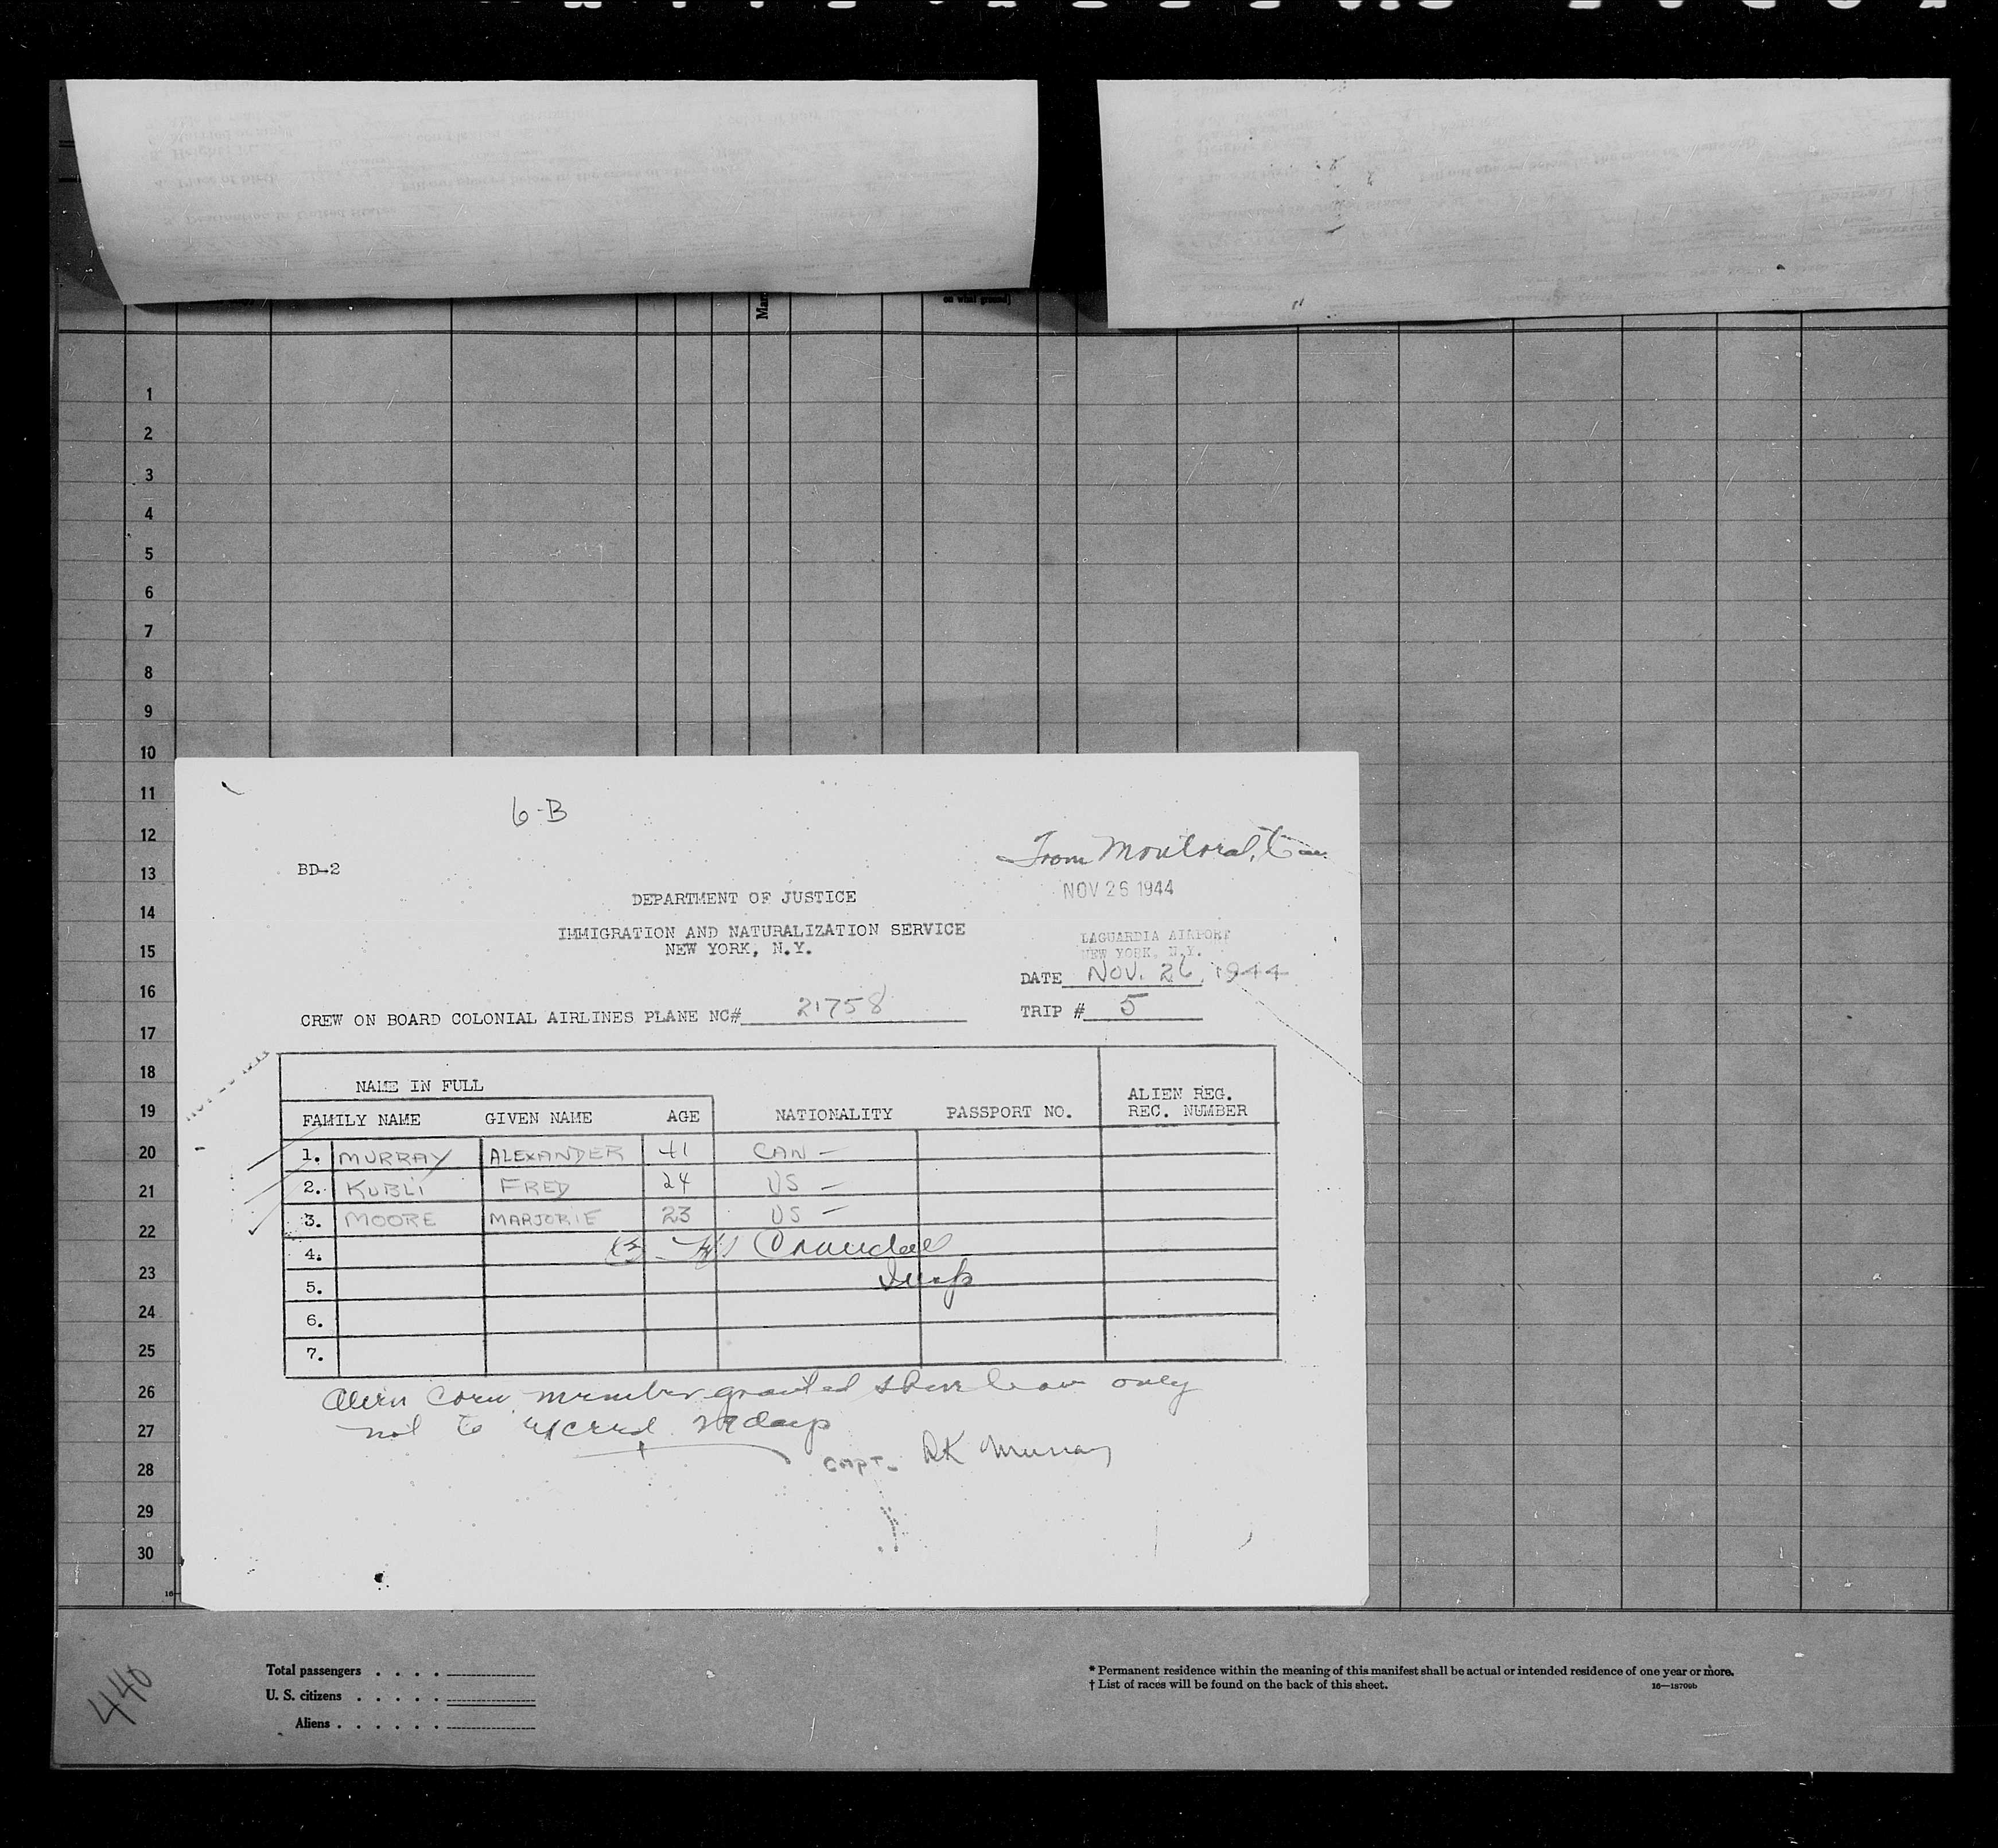 Mar
on what ground)
1
2
3
4
5
6
7
8
9
10
11
12
13
14
15
16
17
18
19
20
21
22
23
24
25
26
27
28
29
30
16
6-B
From Montoral, Can.
BD-2
NOV 26 1944
DEPARTMENT OF JUSTICE
IMMIGRATION AND NATURALIZATION SERVICE
NEW YORK, N.Y.
LAGUARDIA AIRPORT
NEW YORK, N.Y.
DATE NOV. 26, 1944
CREW ON BOARD COLONIAL AIRLINES PLANE NC# 21758
TRIP # 5
NAME IN FULL
ALIEN REG.
FAMILY NAME GIVEN NAME AGE NATIONALITY PASSPORT NO. REC. NUMBER
1. MURRAY ALEXANDER 41 CAN —
2. KUBLI FRED 24 US —
3. MOORE MARJORIE 23 US —
4. Crandall
5. Insp
6.
7.
Alien Crew member granted shore leave only
not to exceed 29 days
CAPT. AK Murray
440
Total passengers . . . .
U. S. citizens . . . . .
Aliens . . . . . .
* Permanent residence within the meaning of this manifest shall be actual or intended residence of one year or more.
† List of races will be found on the back of this sheet.
16—18709b